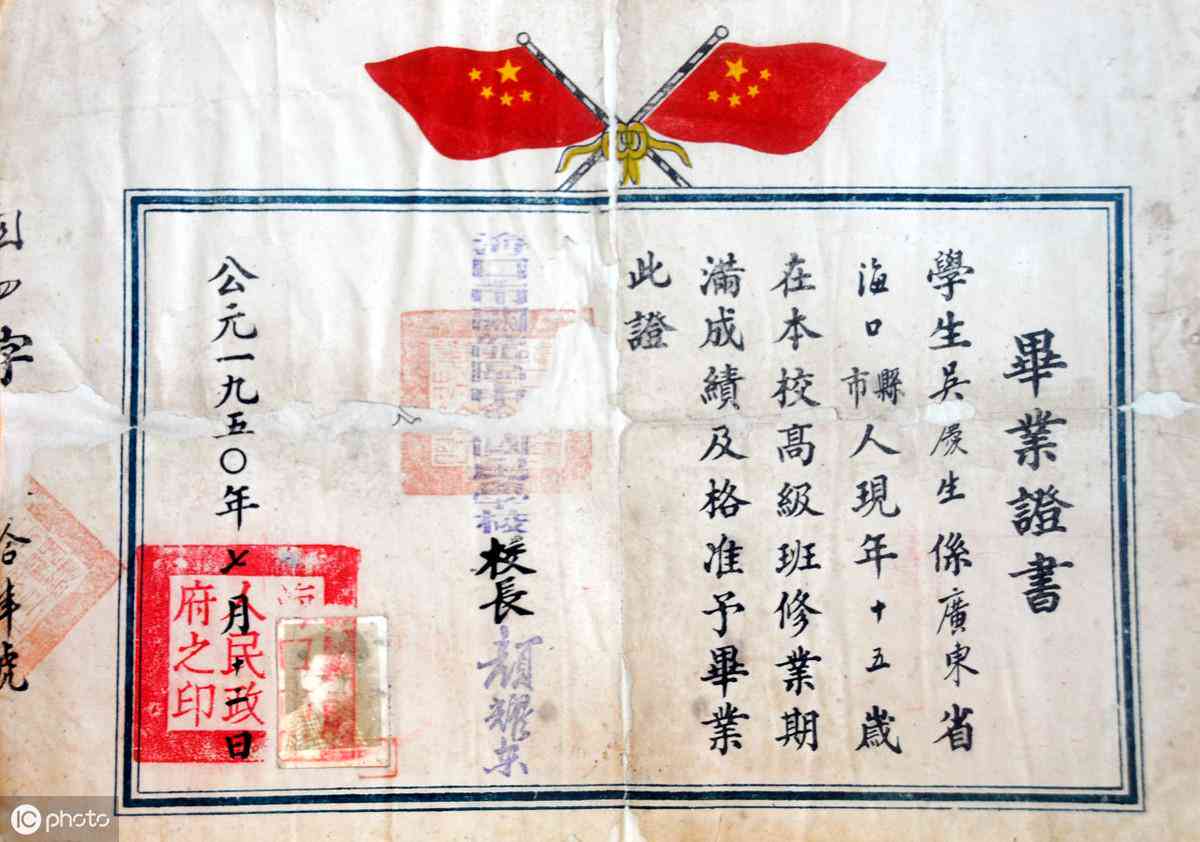 畢業證書
學生吳慶生係廣東省
海口市縣人現年十五歲
在本校高級班修業期
滿成績及格准予畢業
此證
校長顏耀東
公元一九五〇年七月十一日
海口人民政府之印
字拾肆號
IC photo